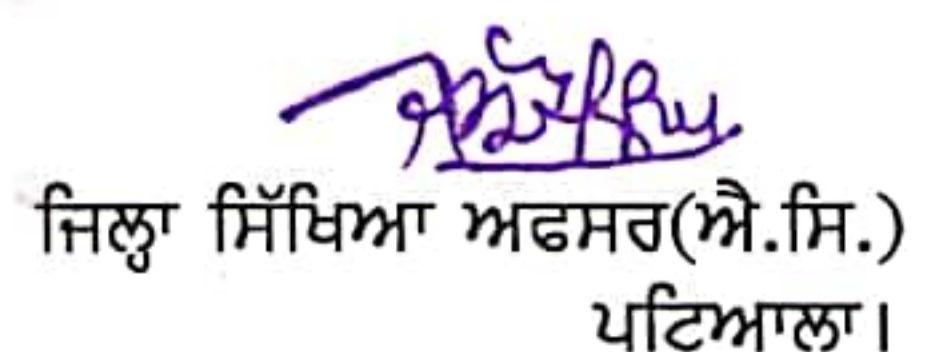 ਜਿਲ੍ਹਾ ਸਿੱਖਿਆ ਅਫਸਰ(ਐ.ਸਿ.)
ਪਟਿਆਲਾ।